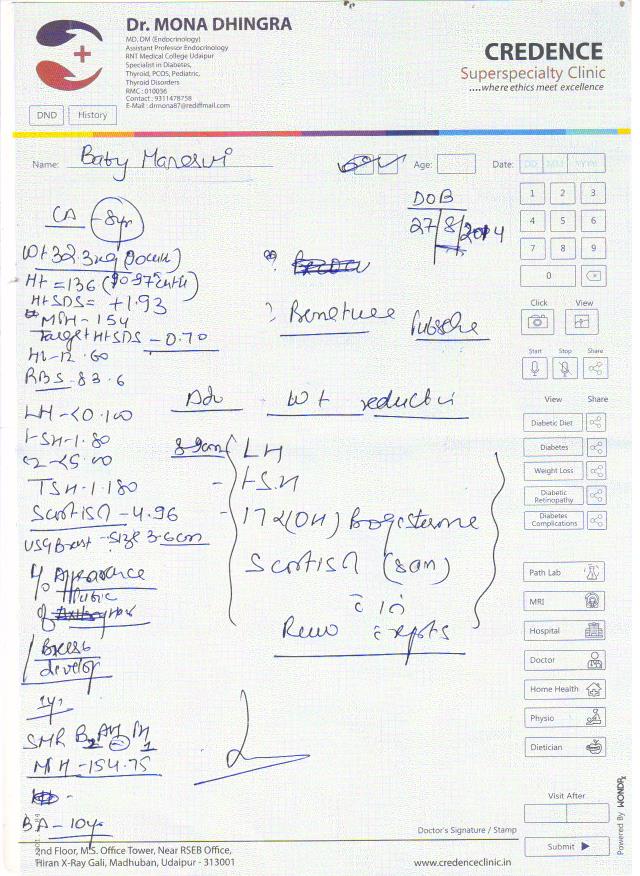 Dr. MONA DHINGRA
MD, DM (Endocrinology)
Assistant Professor Endocrinology
RNT Medical College Udaipur
Specialist in Diabetes,
Thyroid, PCOS, Pediatric,
Thyroid Disorders
RMC : 010036
Contact : 9311478758
E-Mail : drmona87@rediffmail.com
CREDENCE
Superspecialty Clinic
....where ethics meet excellence
DND
History
Name: Baby
Age:
Date: DD MM YYYY
DOB
27/8/2014
CA - 8yr
Wt 32.3kg
Ht = 136 (90-97
HtSDS = +1.93
MPH - 154
Target HtSDS - 0.70
Hb-12.60
RBS - 83.6
LH - <0.100
FSH-1.80
E2-<5.00
TSH-1.180
- 4.96
USG Breast - Size 3.6cm
Appearance
Pubic
of
Breast
develop
1yr
SMR B2 P1
MPH - 154.75
BA - 10yr
? Premature
Adv Wt reduction
8-9am
LH
FSH
17α(OH)
(8am)
Review reports
1 2 3
4 5 6
7 8 9
0
Click View
Start Stop Share
View Share
Diabetic Diet
Diabetes
Weight Loss
Diabetic Retinopathy
Diabetes Complications
Path Lab
MRI
Hospital
Doctor
Home Health
Physio
Dietician
Visit After
Submit
Powered By WONDRx
Doctor's Signature / Stamp
2nd Floor, M.S. Office Tower, Near RSEB Office,
Hiran X-Ray Gali, Madhuban, Udaipur - 313001
www.credenceclinic.in